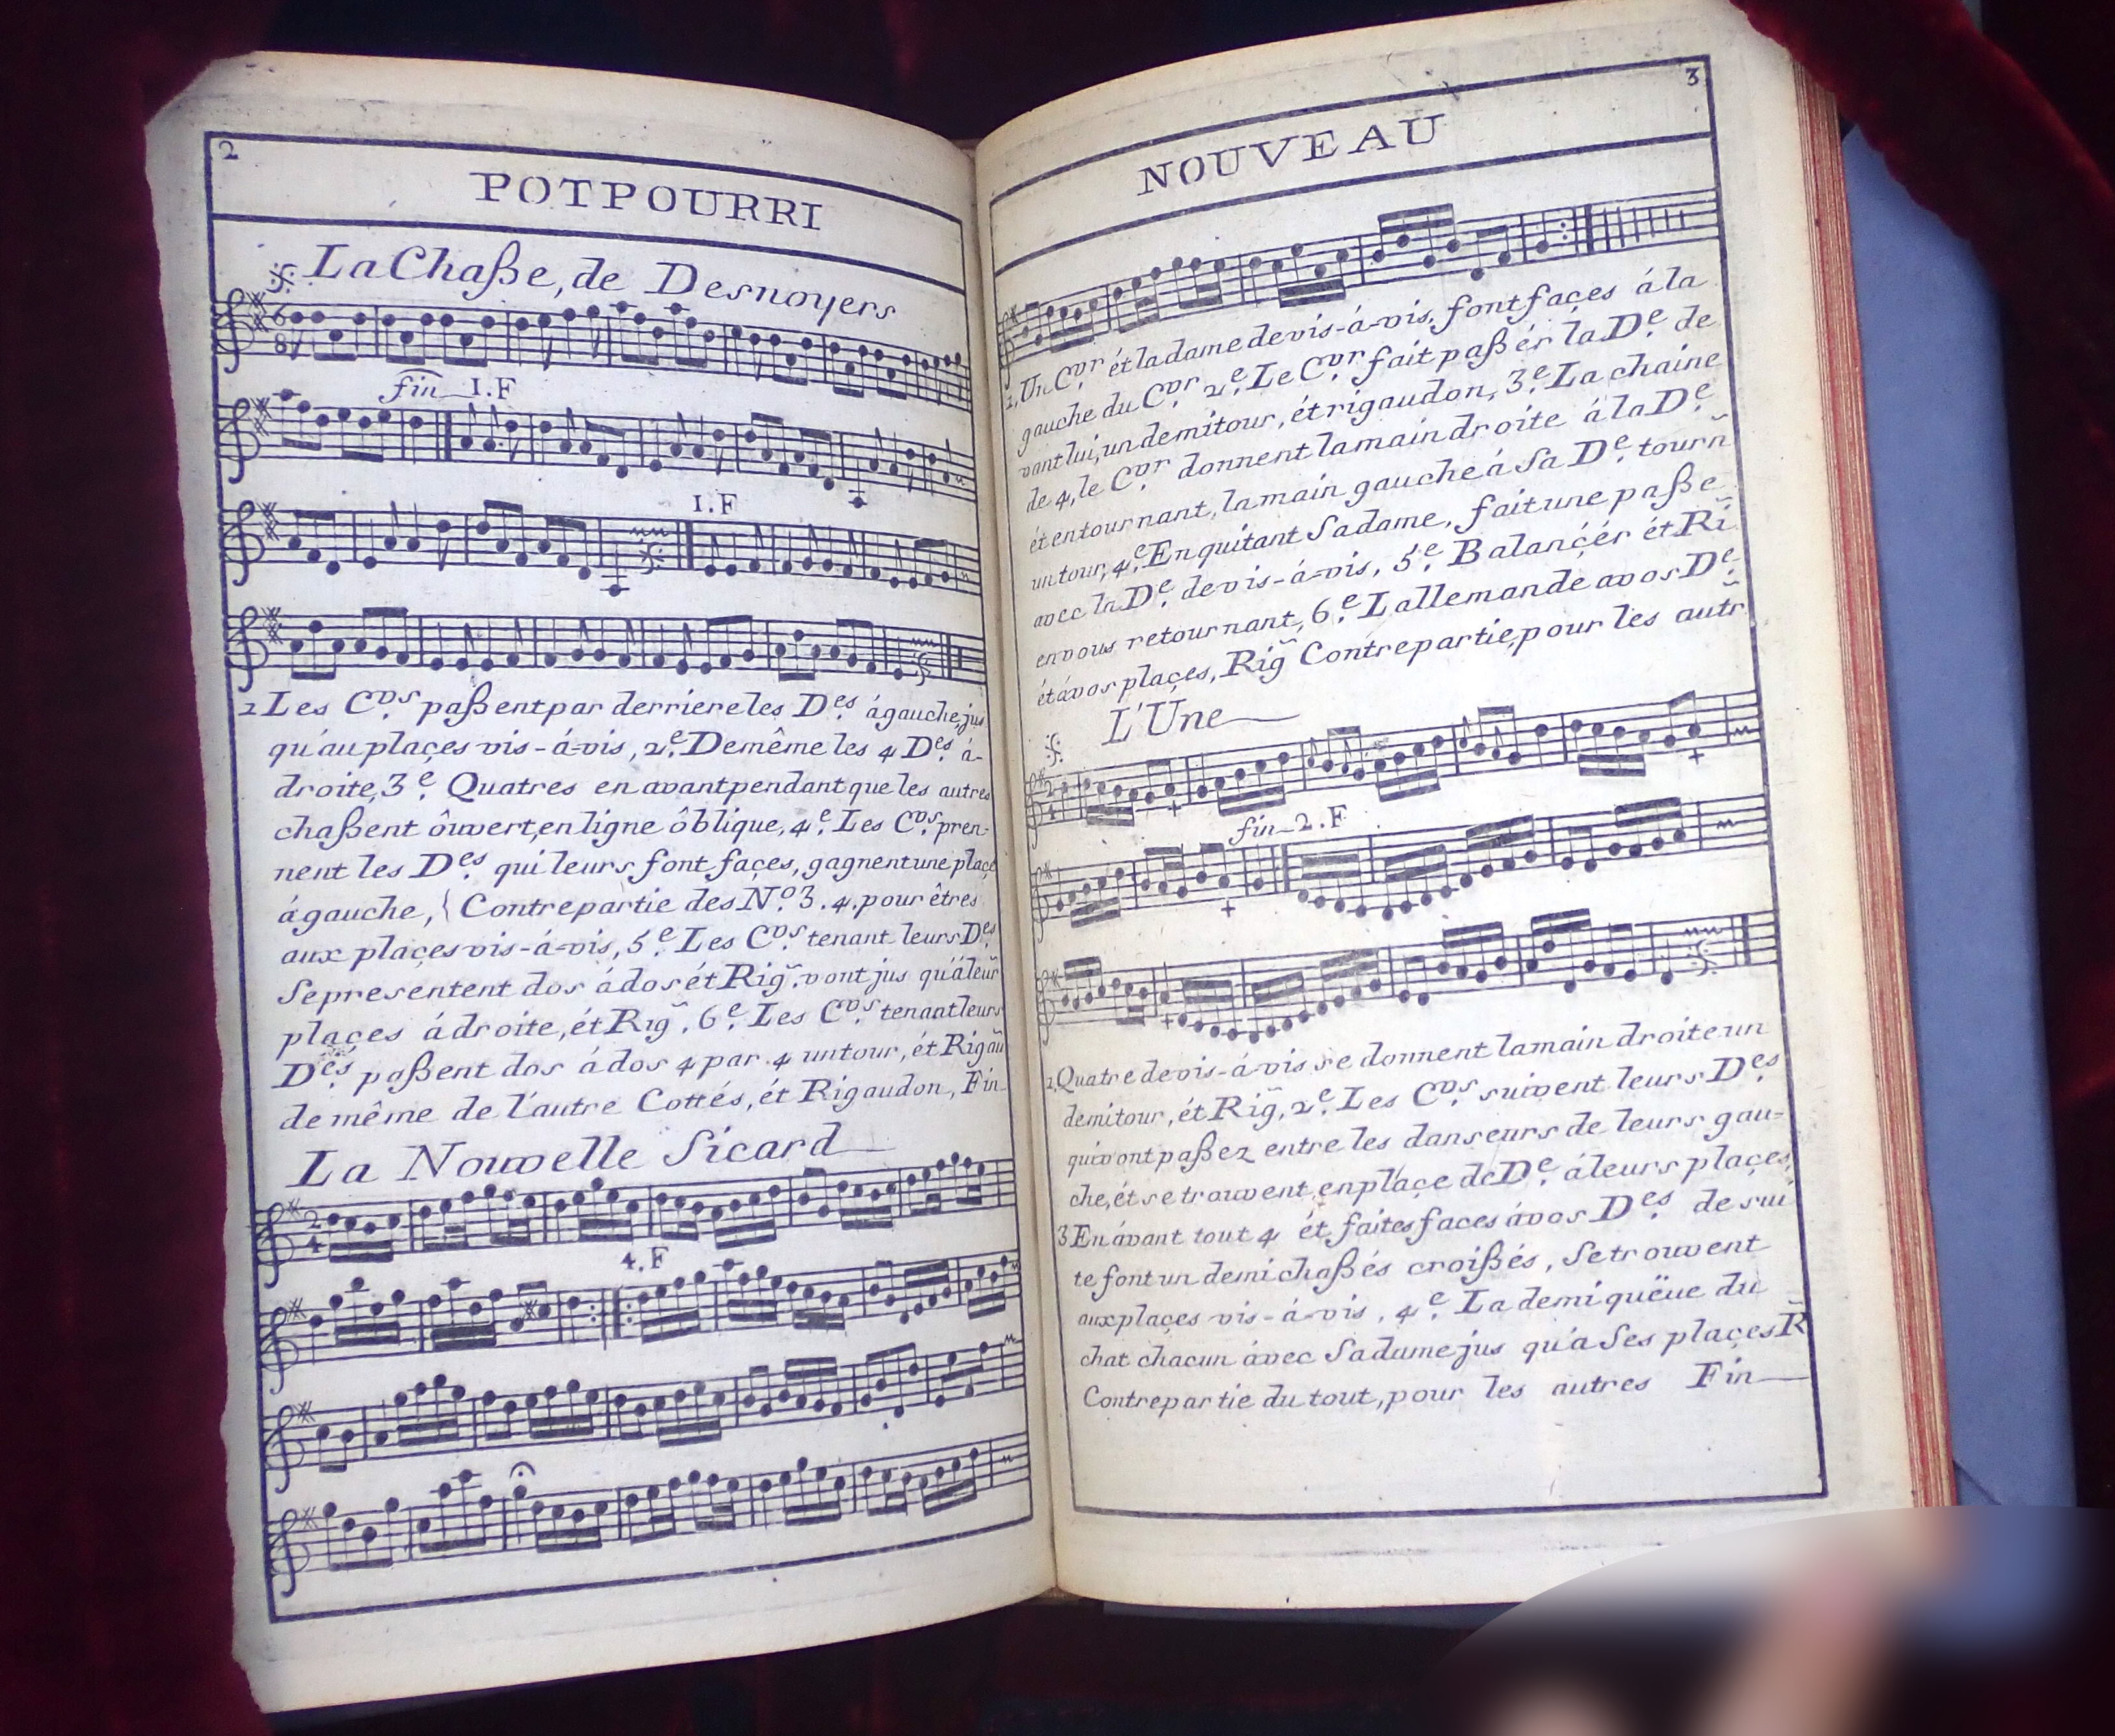 2
POTPOURRI
La Chaße, de Desnoyers
6
8
fin 1.F
1.F
2 Les C.vrs paßent par derriere les D.es á gauche, jus
qu'au plaçes vis-á-vis, 2.e Demême les 4 D.es á-
droite, 3.e Quatres en avant pendant que les autres
chaßent ôuvert, en ligne ôblique, 4.e Les C.vrs pren-
nent les D.es qui leurs font façes, gagnent une plaçe
á gauche, { Contrepartie des N.o 3. 4. pour êtres
aux plaçes vis-á-vis, 5.e Les C.vrs tenant leurs D.es
Se presentent dos á dos ét Rig.̃ vont jus qu'á leur̃
plaçes á droite, ét Rig̃. 6.e Les C.vrs tenant leurs
D.es paßent dos á dos 4 par 4 un tour, ét Rigau
de même de l'autre Cottés, ét Rigaudon, Fin
La Nouvelle Sicard
2
4
4.F
3
NOUVEAU
1. Un C.vr ét la dame de vis-á-vis, font façes á la
gauche du C.vr 2.e Le C.vr fait paßér la D.e de
vant lui, un demi tour, ét rigaudon, 3.e La chaine
de 4, le C.vr donnent la main droite á la D.e
ét en tournant, la main gauche á Sa D.e tourñ
un tour, 4.e En quitant Sa dame, fait une paße
avec la D.e de vis-á-vis, 5.e Balançér ét Rĩ
en vous retournant, 6.e Lallemande a vos D.e
ét á vos plaçes, Rig̃ Contrepartie, pour les autr
L'Une
2
4
fin 2.F
1. Quatre de vis-á-vis se donnent la main droite un
demi tour, ét Rig̃, 2.e Les C.vrs suivent leurs D.es
qui vont paßez entre les danseurs de leurs gau-
che, ét se trouvent en plaçe de D.e á leurs plaçes,
3 En ávant tout 4 ét faites faces á vos D.es de sui
te font un demi chaßés croißés, Se trouvent
aux plaçes vis-á-vis, 4.e La demi quëue du
chat chacun ávec Sa dame jus qu'a Ses plaçes R̃
Contrepartie du tout, pour les autres Fin